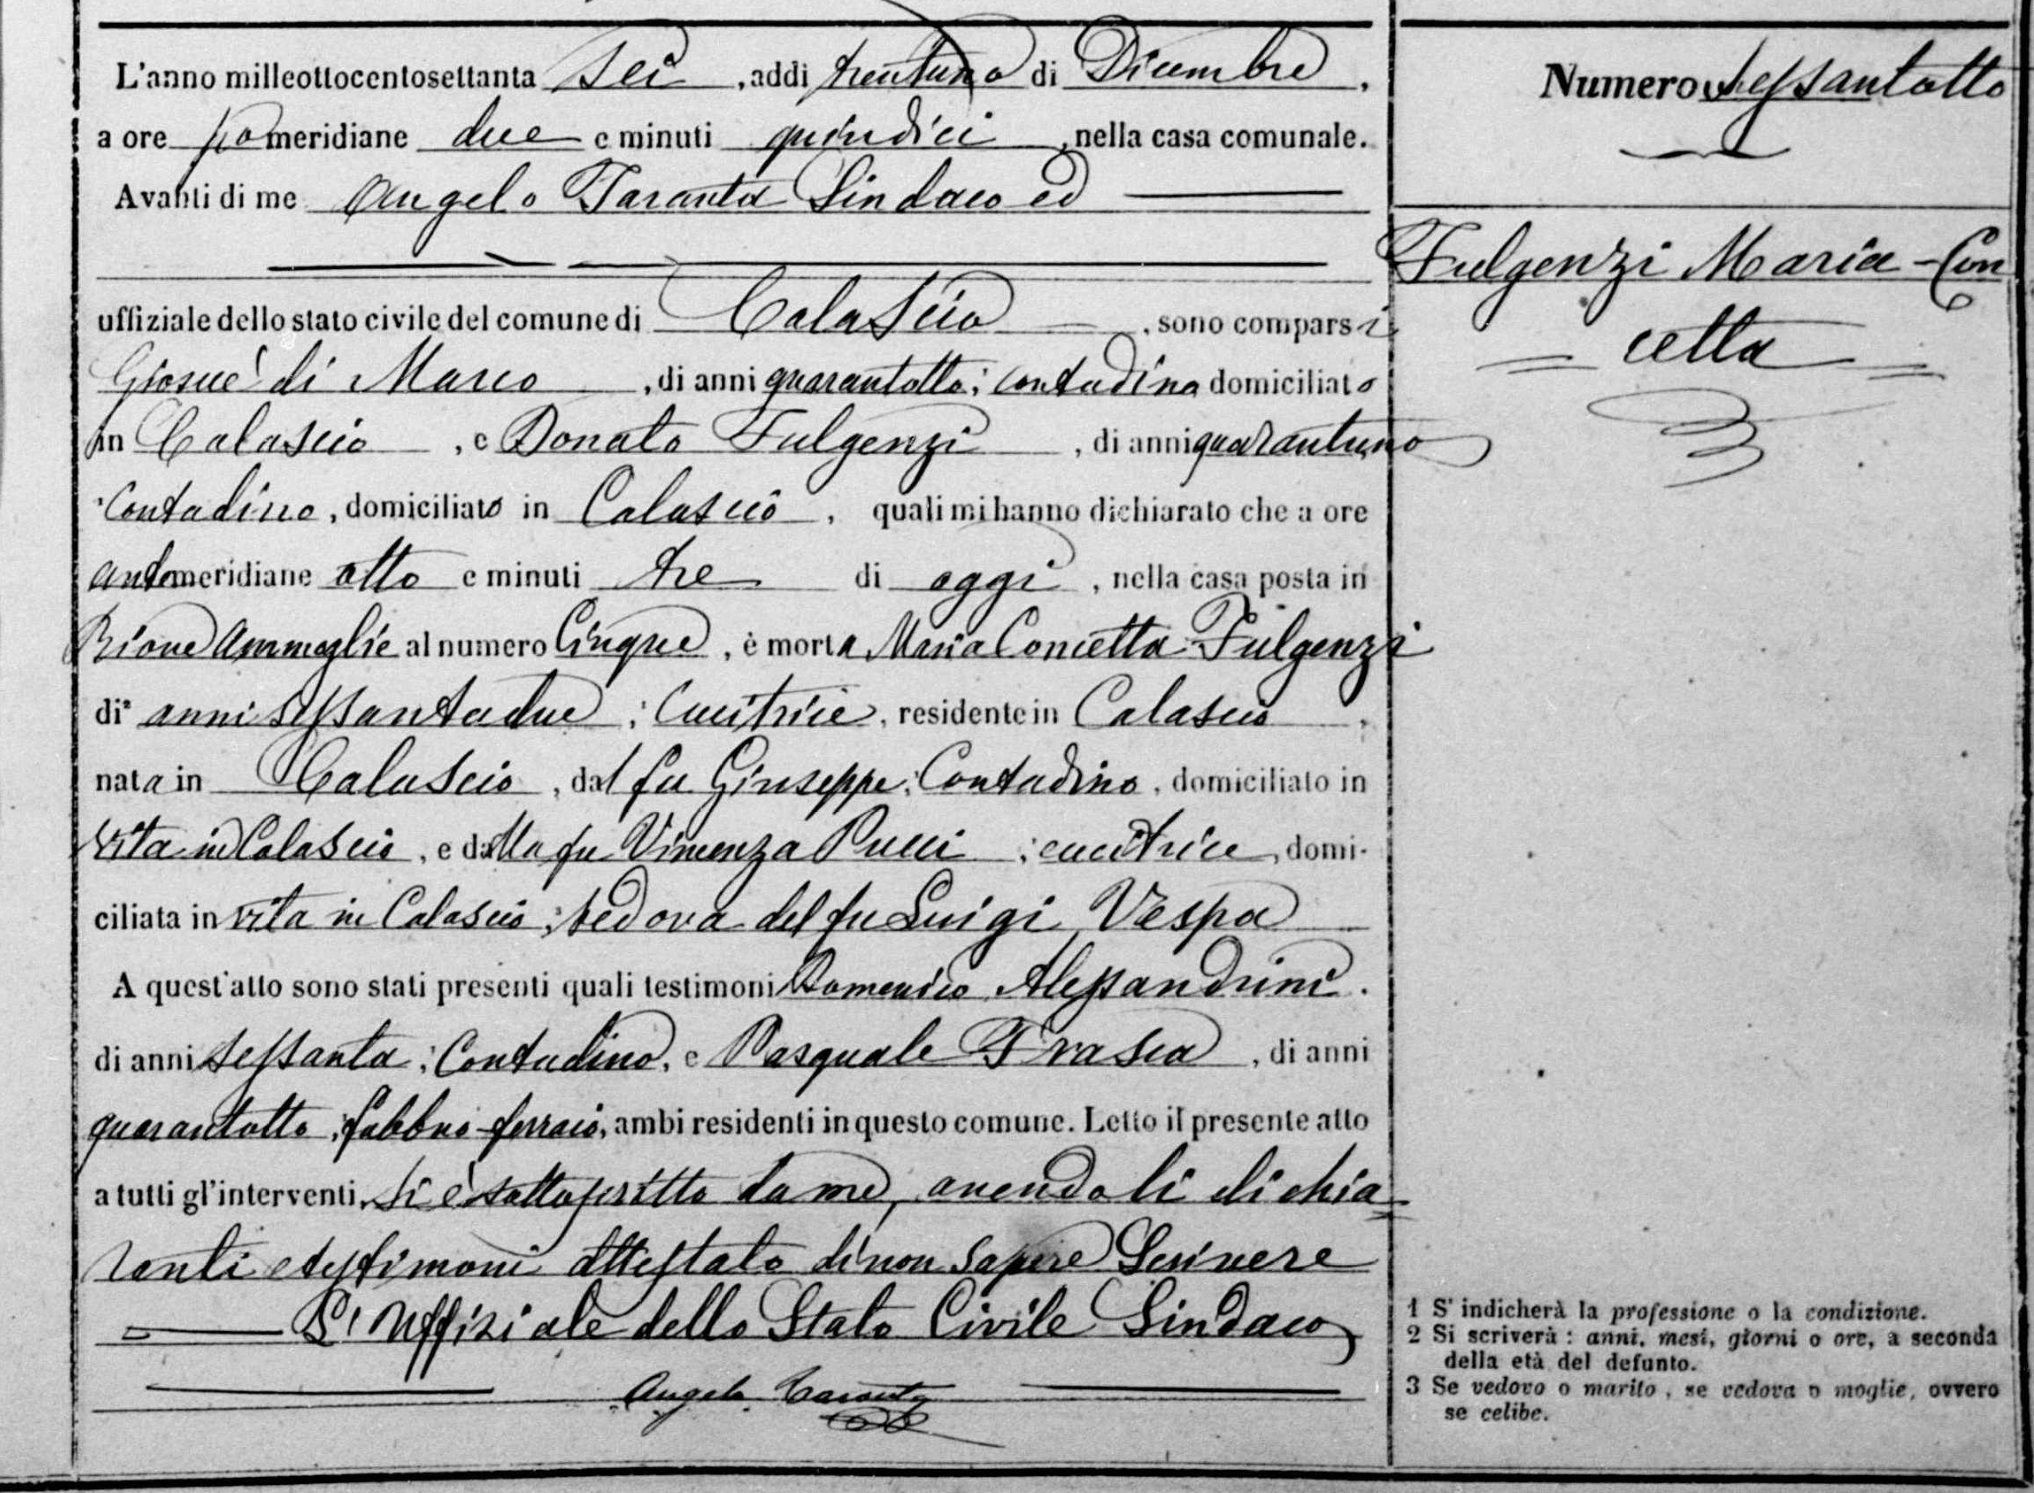 L'anno milleottocentosettanta sei, addì trentuno di Dicembre,
a ore pomeridiane due e minuti quindici, nella casa comunale.
Avanti di me Angelo Taranta Sindaco ed
uffiziale dello stato civile del comune di Calascio, sono comparsi
Giosuè di Marco, di anni quarantotto; contadino domiciliato
in Calascio, e Donato Fulgenzi, di anni quarantuno
Contadino, domiciliato in Calascio, quali mi hanno dichiarato che a ore
antemeridiane otto e minuti tre di oggi, nella casa posta in
Rione al numero Cinque, è morta Maria Concetta Fulgenzi
di² anni sessantadue; Cucitrice, residente in Calascio,
nata in Calascio, dal fu Giuseppe; Contadino, domiciliato in
vita in Calascio, e dalla fu Vincenza Pucci; cucitrice, domi-
ciliata in vita in Calascio; vedova del fu Luigi Vespa
A quest'atto sono stati presenti quali testimoni Domenico Alessandrini.
di anni sessanta; Contadino, e Pasquale Frasca, di anni
quarantotto; fabbro-ferraio, ambi residenti in questo comune. Letto il presente atto
a tutti gl'interventi, si è sottoscritto da me, avendo li dichia=
ranti e testimoni attestato di non sapere Scrivere
L'Uffiziale dello Stato Civile Sindaco
Angelo Taranta
Numero Sessantotto
Fulgenzi Maria-Con
cetta
1 S'indicherà la professione o la condizione.
2 Si scriverà: anni, mesi, giorni o ore, a seconda
della età del defunto.
3 Se vedovo o marito, se vedova o moglie, ovvero
se celibe.